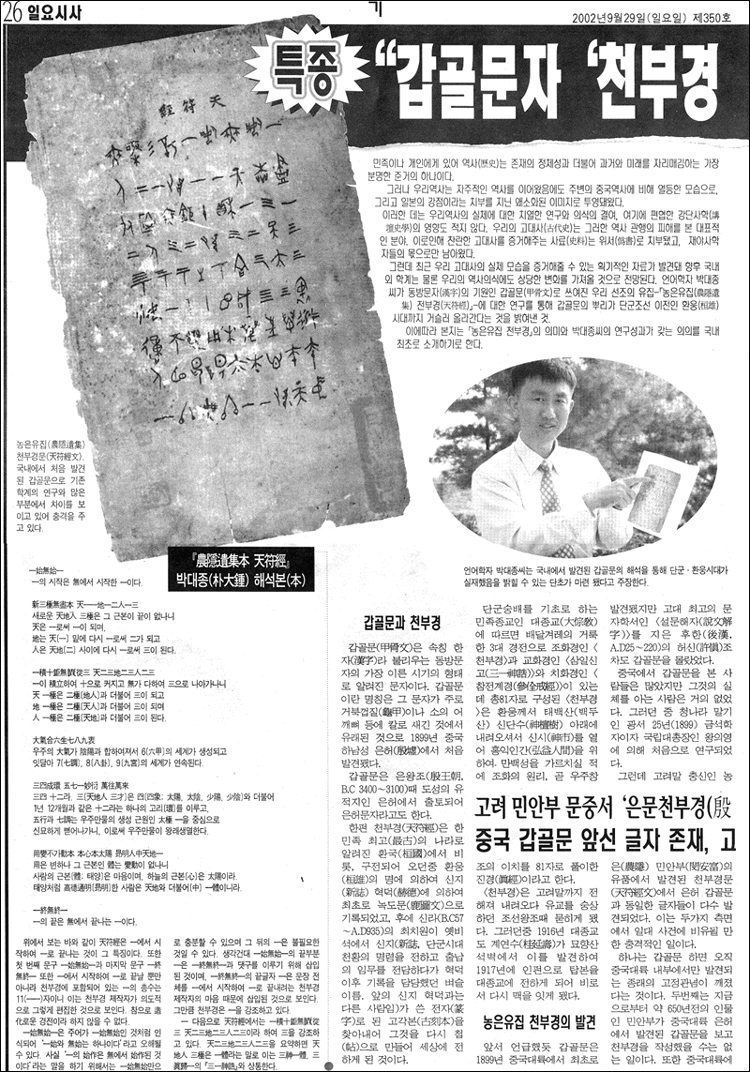 26 일요시사
2002년9월29일(일요일) 제350호
특종
“갑골문자 ‘천부경
민족이나 개인에게 있어 역사(歷史)는 존재의 정체성과 더불어 과거와 미래를 자리매김하는 가장
분명한 준거의 하나이다.
그러나 우리역사는 자주적인 역사를 이어왔음에도 주변의 중국역사에 비해 열등한 모습으로,
그리고 일본의 강점이라는 치부를 지닌 왜소화된 이미지로 투영돼왔다.
이러한 데는 우리역사의 실체에 대한 치열한 연구와 의식의 결여, 여기에 편협한 강단사학(講
壇史學)의 영향도 적지 않다. 우리의 고대사(古代史)는 그러한 역사 관행의 피해를 본 대표적
인 분야. 이로인해 찬란한 고대사를 증거해주는 사료(史料)는 위서(僞書)로 치부됐고, 재야사학
자들의 몫으로만 남아왔다.
그런데 최근 우리 고대사의 실제 모습을 증거해줄 수 있는 획기적인 자료가 발견돼 향후 국내
외 학계는 물론 우리의 역사의식에도 상당한 변화를 가져올 것으로 전망된다. 언어학자 박대종
씨가 동방문자(漢字)의 기원인 갑골문(甲骨文)로 쓰여진 우리 선조의 유집-『농은유집(農隱遺
集) 천부경(天符經)』-에 대한 연구를 통해 갑골문의 뿌리가 단군조선 이전인 환웅(桓雄)
시대까지 거슬러 올라간다는 것을 밝혀낸 것.
이에따라 본지는 「농은유집 천부경」의 의미와 박대종씨의 연구성과가 갖는 의의를 국내
최초로 소개하기로 한다.
天符經
농은유집(農隱遺集)
천부경문(天符經文).
국내에서 처음 발견
된 갑골문으로 기존
학계의 연구와 많은
부분에서 차이를 보
이고 있어 충격을 주
고 있다.
언어학자 박대종씨는 국내에서 발견된 갑골문의 해석을 통해 단군·환웅시대가
실재했음을 밝힐 수 있는 단초가 마련 됐다고 주장한다.
『農隱遺集本 天符經』
박대종(朴大鍾) 해석본(本)
一始無始一
一의 시작은 無에서 시작한 一이다.
新三極無盡本 天一一地一二人一三
새로운 天地人 三極은 그 근본이 끝이 없나니
天은 一로써 一이 되며,
地는 天(一) 밑에 다시 一로써 二가 되고
人은 天地(二) 사이에 다시 一로써 三이 된다.
一積十鉅無匱從三 天二三地二三人二三
一이 積立하여 十으로 커지고 無가 다하여 三으로 나아가나니
天 一極은 二極(地人)과 더불어 三이 되고
地 一極은 二極(天人)과 더불어 三이 되며
人 一極은 二極(天地)과 더불어 三이 된다.
大氣合六生七八九衷
우주의 大氣가 陰陽과 합하여져서 6(六甲)의 세계가 생성되고
잇달아 7(七調), 8(八卦), 9(九宮)의 세계가 연속된다.
三四成環 五七一妙衍 萬往萬來
三四 十二라, 三(天地人 三才)은 四(四象: 太陽, 太陰, 少陽, 少陰)와 더불어
1년 12개월과 같은 十二라는 하나의 고리(環)를 이루고,
五行과 七調는 우주만물의 생성 근원인 太極 一을 중심으로
신묘하게 뻗어나가니, 이로써 우주만물이 왕래생멸한다.
用變不動本 本心本太陽 昴明人中天地一
用은 변하나 그 근본인 體는 變動이 없나니
사람의 근본(體: 태양)은 마음이며, 하늘의 근본(心)은 太陽이라.
태양처럼 高德通明(昴明)한 사람은 天地와 더불어(中) 一體이니라.
一終無終一
一의 끝은 無에서 끝나는 一이다.
위에서 보는 바와 같이 天符經은 一에서 시
작하여 一로 끝나는 것이 그 특징이다. 또한
첫 번째 문구 一始無始一과 마지막 문구 一終
無終一 또한 一에서 시작하여 一로 끝날 뿐만
아니라 천부경에 포함되어 있는 一의 총수는
11(一)자이니 이는 천부경 제작자가 의도적
으로 그렇게 편집한 것으로 보인다. 참으로 造
化로운 경전이라 하지 않을 수 없다.
一始無始一은 주어가 一始無始인 것처럼 인
식되어 '一始와 無始는 하나이다'라고 오해될
수 있다. 사실 '一의 始作은 無에서 始作된 것
이다'라는 말을 하기 위해서는 一始無始만으
로 충분할 수 있으며 그 뒤의 一은 불필요한
것일 수 있다. 생각건대 一始無始一의 끝부분
一은 一終無終一과 댓구를 이루기 위해 삽입
된 것이며, 一終無終一의 끝글자 一은 문장 전
체를 一에서 시작하여 一로 끝내려는 천부경
제작자의 마음 때문에 삽입된 것으로 보인다.
그만큼 천부경은 一을 강조하고 있다.
一 다음으로 천부경에서는 一積十鉅無匱從
三 天二三地二三人二三이라 하여 三을 강조하
고 있다. 天二三地二三人二三을 요약하면 天
地人 三極은 一體라는 말로 이는 三神一體, 三
眞歸一의 『三一神誥』와 상통한다.
갑골문과 천부경
갑골문(甲骨文)은 속칭 한
자(漢字)라 불리우는 동방문
자의 가장 이른 시기의 형태
로 알려진 문자이다. 갑골문
이란 명칭은 그 문자가 주로
거북껍질(龜甲)이나 소의 어
깨뼈 등에 칼로 새긴 것에서
유래된 것으로 1899년 중국
하남성 은허(殷墟)에서 처음
발견됐다.
갑골문은 은왕조(殷王朝,
B.C 3400∼3100)때 도성의 유
적지인 은허에서 출토되어
은허문자라고도 한다.
한편 천부경(天符經)은 한
민족 최고(最古)의 나라로
알려진 환국(桓國)에서 비
롯, 구전되어 오던중 환웅
(桓雄)의 명에 의하여 신지
(新誌) 혁덕(赫德)에 의하여
최초로 녹도문(鹿圖文)으로
기록되었고, 후에 신라(B.C57
∼A.D935)의 최치원이 옛비
석에서 신지(新誌, 단군시대
천황의 명령을 전하고 출납
의 임무를 전담하다가 혁덕
이후 기록을 담당했던 벼슬
이름. 앞의 신지 혁덕과는
다른 사람임)가 쓴 전자(篆
字)로 된 고각본(古刻本)을
찾아내어 그것을 다시 첩
(帖)으로 만들어 세상에 전
하게 된 것이다.
단군숭배를 기초로 하는
민족종교인 대종교(大倧敎)
에 따르면 배달겨레의 거룩
한 3대 경전으로 조화경인〈
천부경〉과 교화경인 〈삼일신
고(三一神誥)〉와 치화경인〈
참전계경(參佺戒經)〉이 있는
데 총81자로 구성된 〈천부경
〉은 환웅께서 태백산(백두
산) 신단수(神檀樹) 아래에
내려오셔서 신시(神市)를 열
어 홍익인간(弘益人間)을 위
하여, 만백성을 가르치실 적
에 조화의 원리, 곧 우주창
조의 이치를 81자로 풀이한
진경(眞經)이라고 한다.
〈천부경〉은 고려말까지 전
해져 내려오다 유교를 숭상
하던 조선왕조때 묻히게 됐
다. 그러던중 1916년 대종교
도 계연수(桂延壽)가 묘향산
석벽에서 이를 발견하여
1917년에 인편으로 탑본을
대종교에 전하게 되어 비로
서 다시 맥을 잇게 됐다.
농은유집 천부경의 발견
앞서 언급했듯 갑골문은
1899년 중국대륙에서 최초로
발견됐지만 고대 최고의 문
자학서인 〈설문해자(說文解
字)〉를 지은 후한(後漢,
A.D25∼220)의 허신(許愼)조
차도 갑골문을 몰랐었다.
중국에서 갑골문을 본 사
람들은 많았지만 그것의 실
체를 아는 사람은 거의 없었
다. 그러던 중 청나라 말기
인 광서 25년(1899) 금석학
자이자 국립대총장인 왕의영
에 의해 처음으로 연구되었
다.
그런데 고려말 충신인 농
고려 민안부 문중서 ‘은문천부경(殷
중국 갑골문 앞선 글자 존재, 고
은(農隱) 민안부(閔安富)의
유품에서 발견된 천부경문
(天符經文)에서 은허 갑골문
과 동일한 글자들이 다수 발
견되었다. 이는 두가지 측면
에서 일대 사건에 비유될 만
한 충격적인 일이다.
하나는 갑골문 하면 오직
중국대륙 내부에서만 발견되
는 종래의 고정관념이 깨졌
다는 것이다. 두번째는 지금
으로부터 약 650년전의 인물
인 민안부가 중국대륙 은허
에서 발견된 갑골문을 보고
천부경을 작성했을 수는 없
는 일이다. 또한 중국대륙에